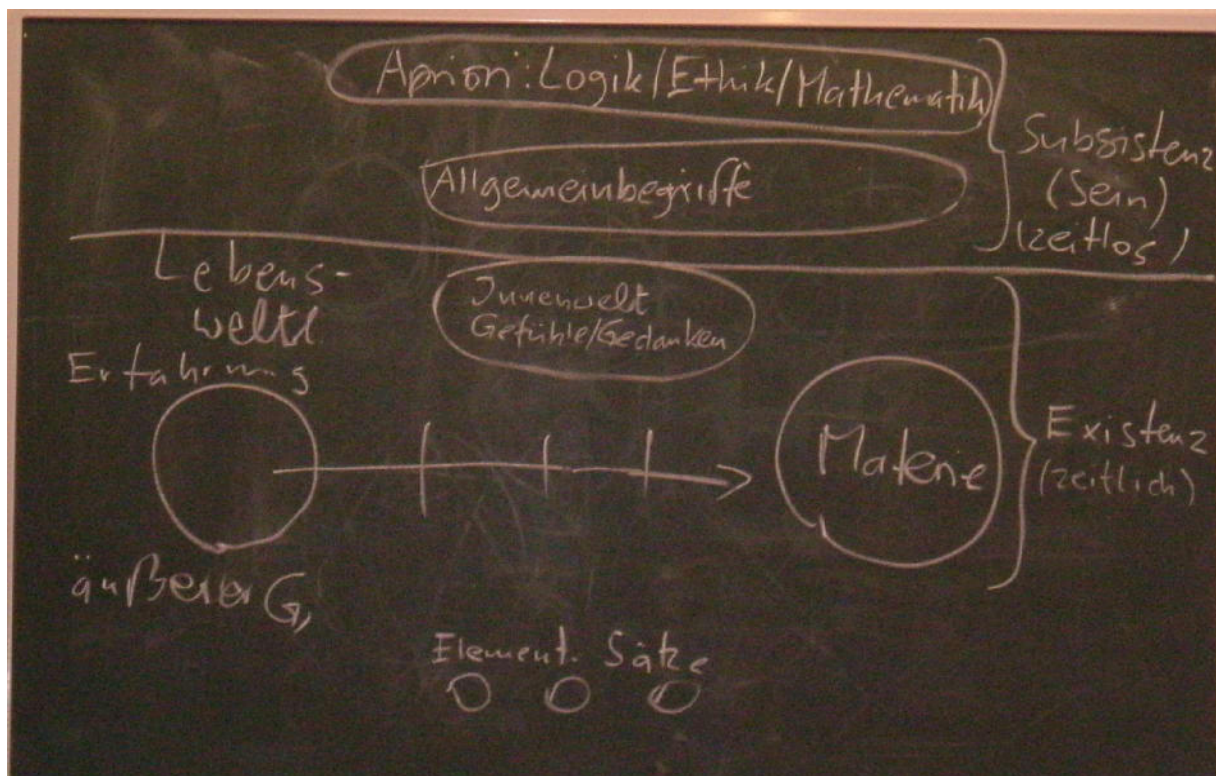 Apriori: Logik/Ethik/Mathematik
Allgemeinbegriffe
Subsistenz
(Sein)
(zeitlos)
Lebens-
weltl.
Erfahrung
Innenwelt
Gefühle/Gedanken
Materie
Existenz
(zeitlich)
äußerer G,
Element. Sätze